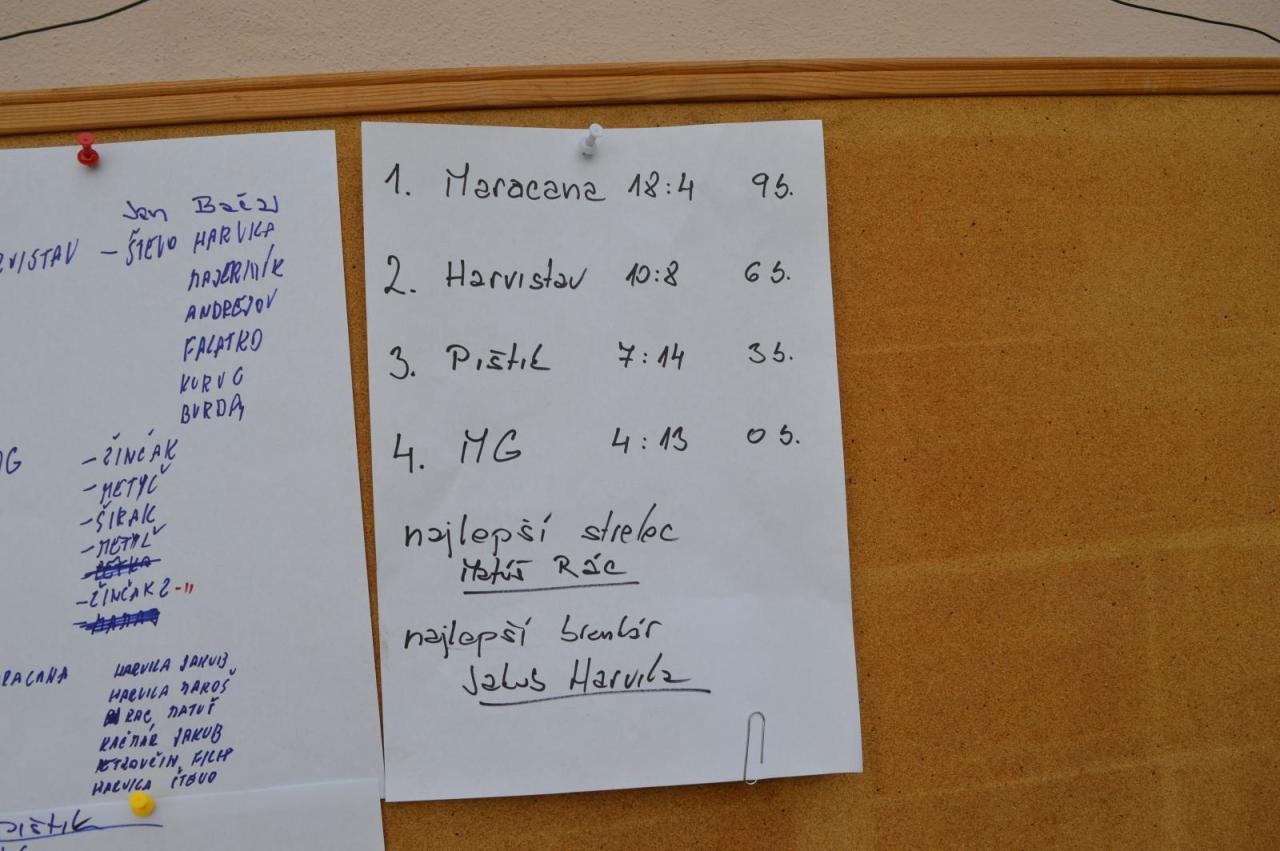 Jan Bačaj
RVISTAV - ŠTEVO HARVILA
MAJERNÍK
ANDREJOV
FALATKO
KURUC
BURDA
MG - ŽINČÁK
- METYĽ
- ŠIRAK
- METYĽ
- ŽINČÁK 2 - "
RACANA HARVILA JAKUB
HARVILA MAROŠ
RAC MATUŠ
KAČMÁR JAKUB
PETROVČIN FILIP
HARVILA ŠTEVO
PIŠTIK
1. Maracana 18:4 9 b.
2. Harvistav 10:8 6 b.
3. Pištik 7:14 3 b.
4. MG 4:13 0 b.
najlepší strelec
Matúš Rác
najlepší brankár
Jakub Harvila